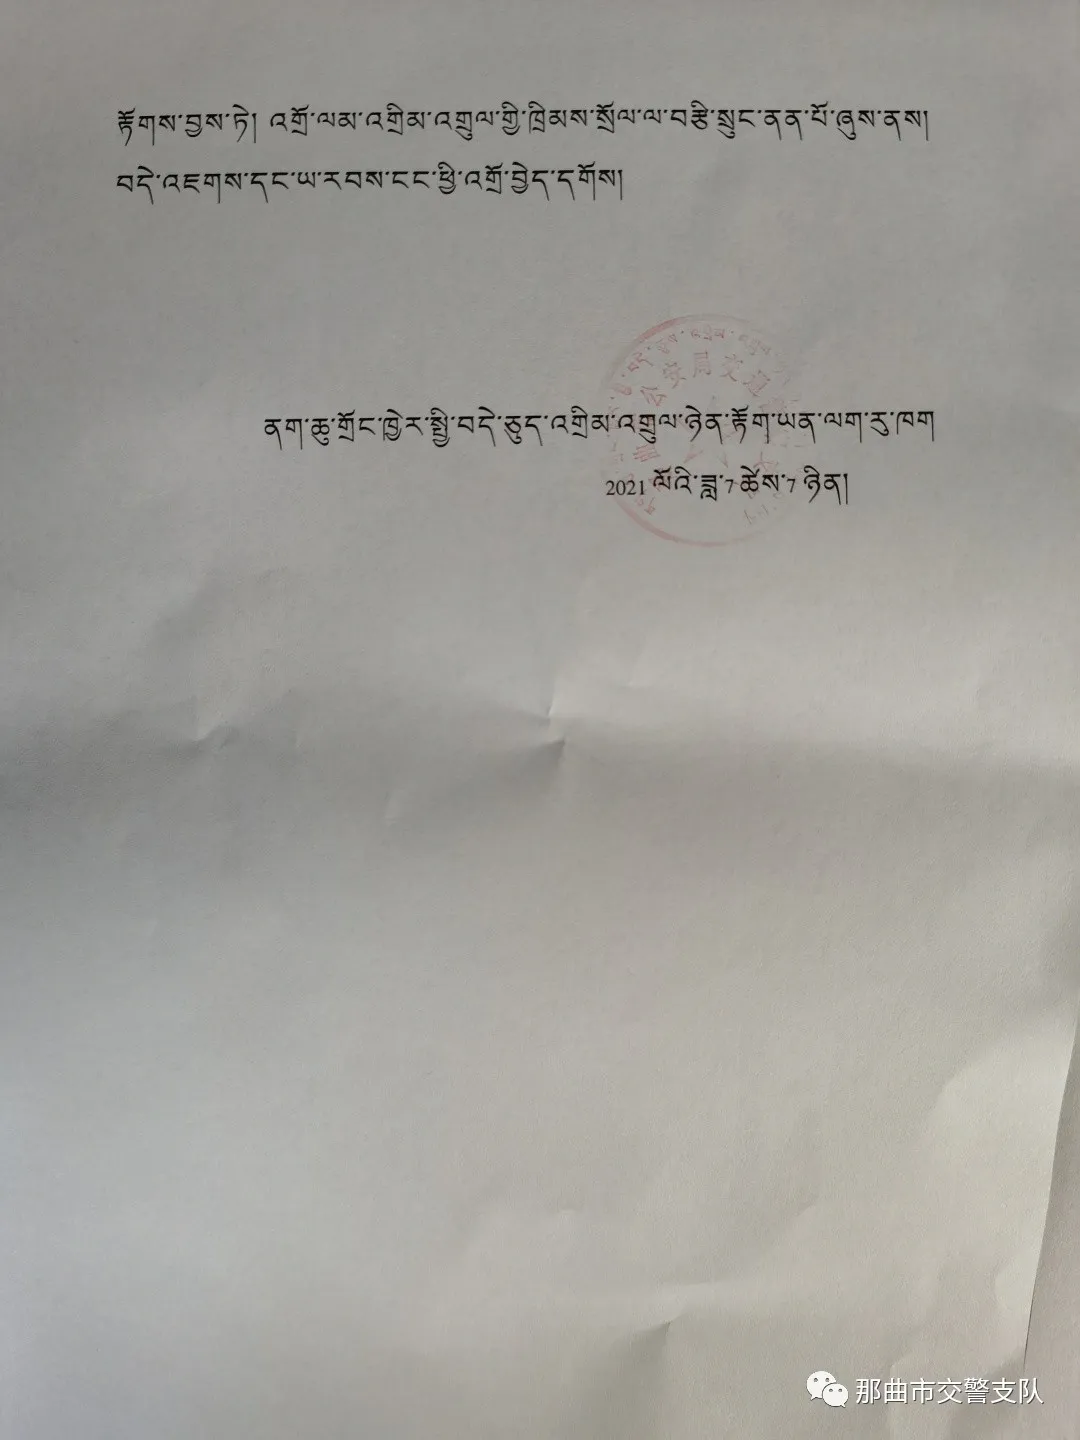 རྟོགས་བྱས་ཏེ། འགྲོ་ལམ་འགྲིམ་འགྲུལ་གྱི་ཁྲིམས་སྲོལ་ལ་བརྩི་སྲུང་ནན་པོ་ཞུས་ནས།
བདེ་འཇགས་དང་ཡ་རབས་ངང་ཕྱི་འགྲོ་བྱེད་དགོས།
公安局交通
ནག་ཆུ་གྲོང་ཁྱེར་སྤྱི་བདེ་ཅུད་འགྲིམ་འགྲུལ་ཉེན་རྟོག་ཡན་ལག་རུ་ཁག
2021 ལོའི་ཟླ་7 ཚེས་7 ཉིན།
那曲市交警支队